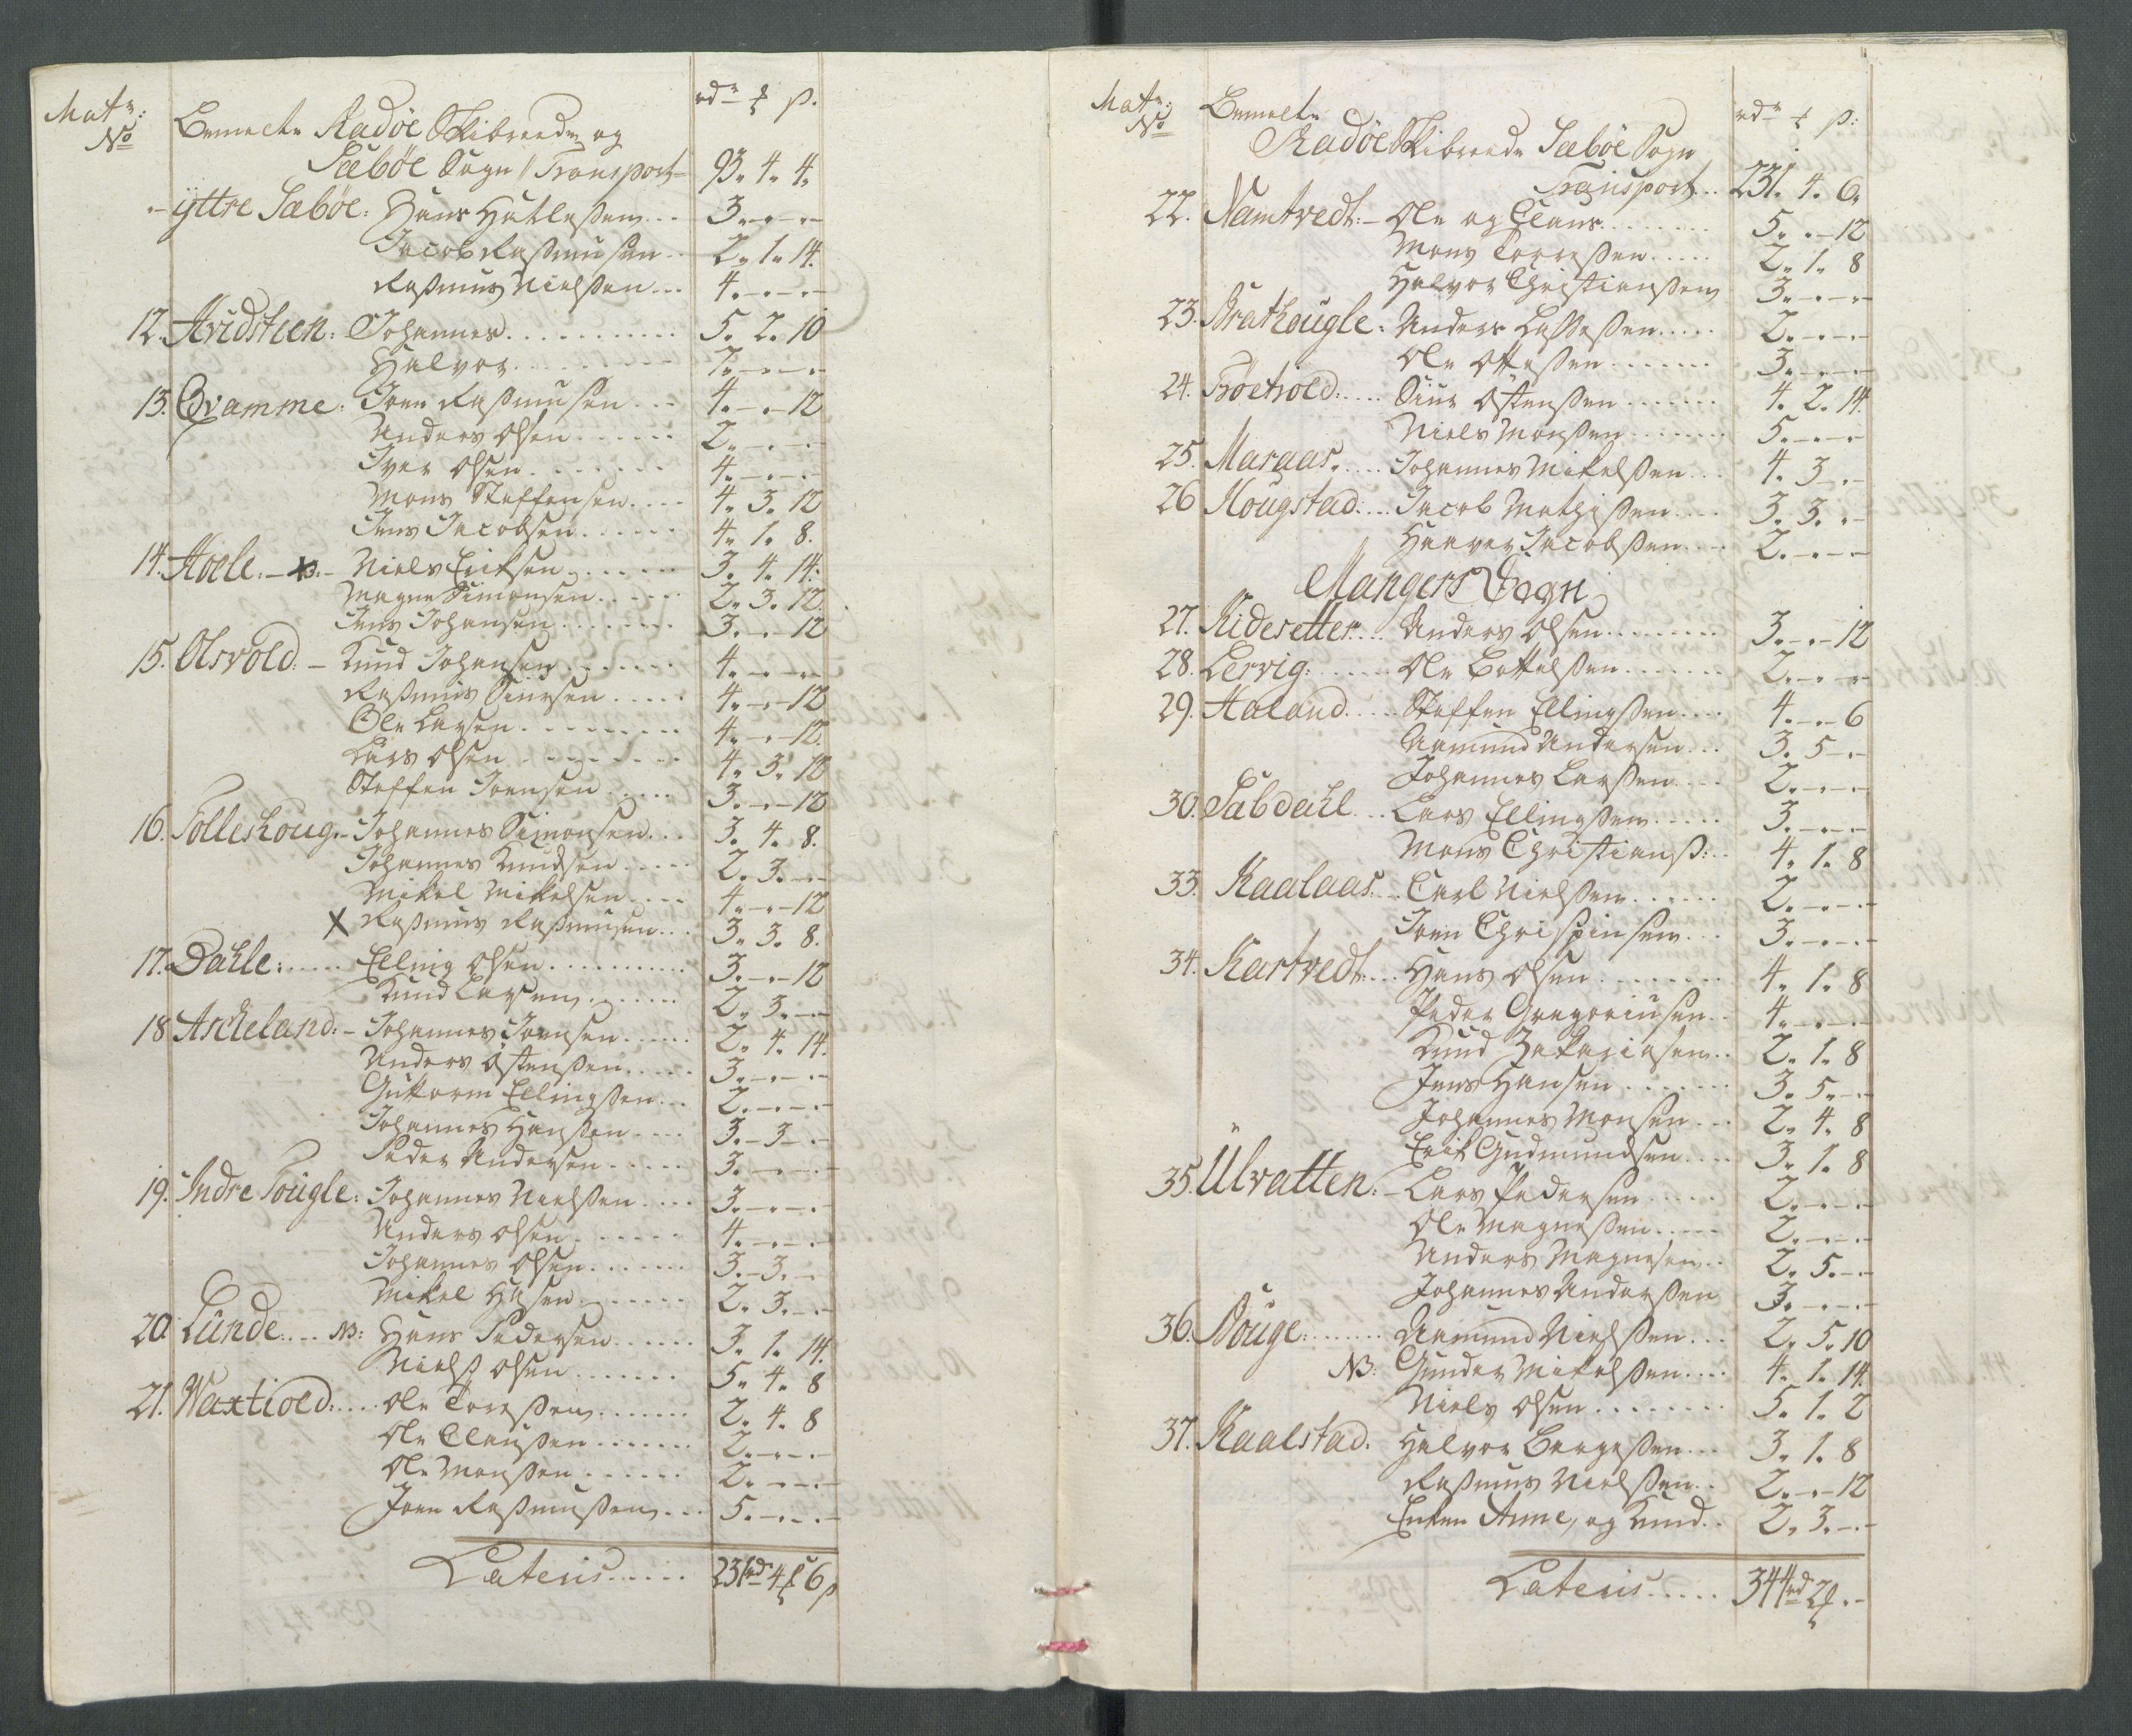 Matr: No
Bemelte Radöe Skibreede og rdr ₰ ß.
Sæböe Sogn // Transport 93. 4. 4.
- ÿttre Sæböe: Hans Hutleßen... 3. - . -
Jacob Raßmusen.. 2. 1. 14.
Raßmus Nielßen... 4. - . -
12. Hvidstien: Johannes.......... 5. 2. 10
Halvor.......... 7. - . -
13. Qvamme: Joen Raßmusen... 4. - . - 12
Anders Olsen...... 2. - . -
Iver Olsen....... 4. - . -
Mons Steffensen.... 4. 3. 12
Jens Jacobsen...... 4. 1. 8.
14. Hoele: - NB: - Niels Ericksen...... 3. 4. 14.
Magne Simonsen..... 2. 3. 12.
Jens Johansen....... 3. - . - 12
15. Olsvold: - Knud Johansen....... 4. - . -
Raßmus Siursen..... 4. - . - 12
Ole Larsen......... 4. - . - 12.
Lars Olsen........ 4. 3. 12
Steffen Joensen..... 3. - . - 12
16. Tolleshoug. - Johannes Simonsen... 3. 4. 8.
Johannes Knudsen..... 2. 3. - . -
Mikel Mikelsen.... 4. - . - 12
X Raßmus Raßmusen... 3. 3. 8.
17. Dahle:..... Elling Olsen........... 3. - . - 12
Knud Larsen....... 2. 3. - . -
18 Askeland: - Johannes Joensen...... 2. 4. 14.
Anders Østenßen..... 3. - . -
Guttorm Ellingßen... 2. - . -
Johannes Hanßen.... 3. - 3 - . -
Peder Andersen..... 3. - . -
19. Indre Tougle: Johannes Nielßen.... 3. - . -
Anders Olsen....... 4. - . -
Johannes Olsen...... 3. - 3. -
Mikel Hansen...... 2. 3. - . -
20. Lünde:... NB: Hans Pedersen...... 3. 1. 14.
Nielß Olsen....... 5. 4. 8
21. Waxtvold:.... Ole Toreßen....... 2. 4. 8
Ole Claußen....... 2. - . -
Ole Monßen...... 2. - . -
Joen Raßmußen... 5. - . -
Lateris..... 231rd 4₰ 6ß
Matr: No
Bemelte rdr ₰ ß:
Radöe Skibreede Sæböe Sogn
Transport.. 231. 4. 6.
22. Namtvedt: - Ole og Claus........ 5. . - 12
Mons Torreßen..... 2. 1. 8
Halvor Christianßen 3. - . -
23. Brathougle: Anders Laßeßen..... 2. - . -
Ole Otteßen....... 3. - . -
24. Tröetvold:.... Siur Östenßen....... 4. 2. 14.
Niels Monßen....... 5. - . -
25. Maraas..... Johannes Mikelßen... 4. 3 - . -
26 Hougstad:... Jacob Mathißen.... 3. 3. . -
Haaver Jacobßen.... 2. - . -
Mangers Sogn
27. Kidesetter... Anders Olsen........ 3. - . - 12
28. Lervig:...... Ole Bottelßen...... 2. - . -
29. Haland..... Steffen Ellingßen.... 4. - . - 6
Aamund Andersen... 3. 5 - . -
Johannes Larßen.... 2. - . -
30. Sæbdahl... Lars Ellingßen..... 3. - . -
Mons Christianß:.. 4. 1. 8
33. Kaalaas... Carl Nielßen...... 2. - . -
Joen Chrispinsen... 3. - . -
34. Kartvedt:... Hans Olsen......... 4. 1. 8
Peder Gregoriusen.. 4. - . -
Knud Zakariasen.. 2. 1. 8
Jens Hansen....... 3. 5. - . -
Johannes Monsen... 2. 4. 8
Erik Gudmundsen.... 3. 1. 8
35. Ülvatten: - Lars Pedersen..... 2. - . -
Ole Magneßen..... 2. - . -
Anders Magnesen.. 2. 5. - . -
Johannes Anderßen 3. - . -
36. Bouge:....... Aamund Nielßen.... 2. 5. 10
NB. Gunder Mikelßen.... 4. 1. 14.
Niels Olsen........ 5. 1. 2
37. Kaalstad. Halvor Bergeßen... 3. 1. 8
Raßmus Nielßen.. 2. - . - 12
Enken Anne, og Knud.. 2. 3. - . -
Lateris..... 344rd 2₰ . -